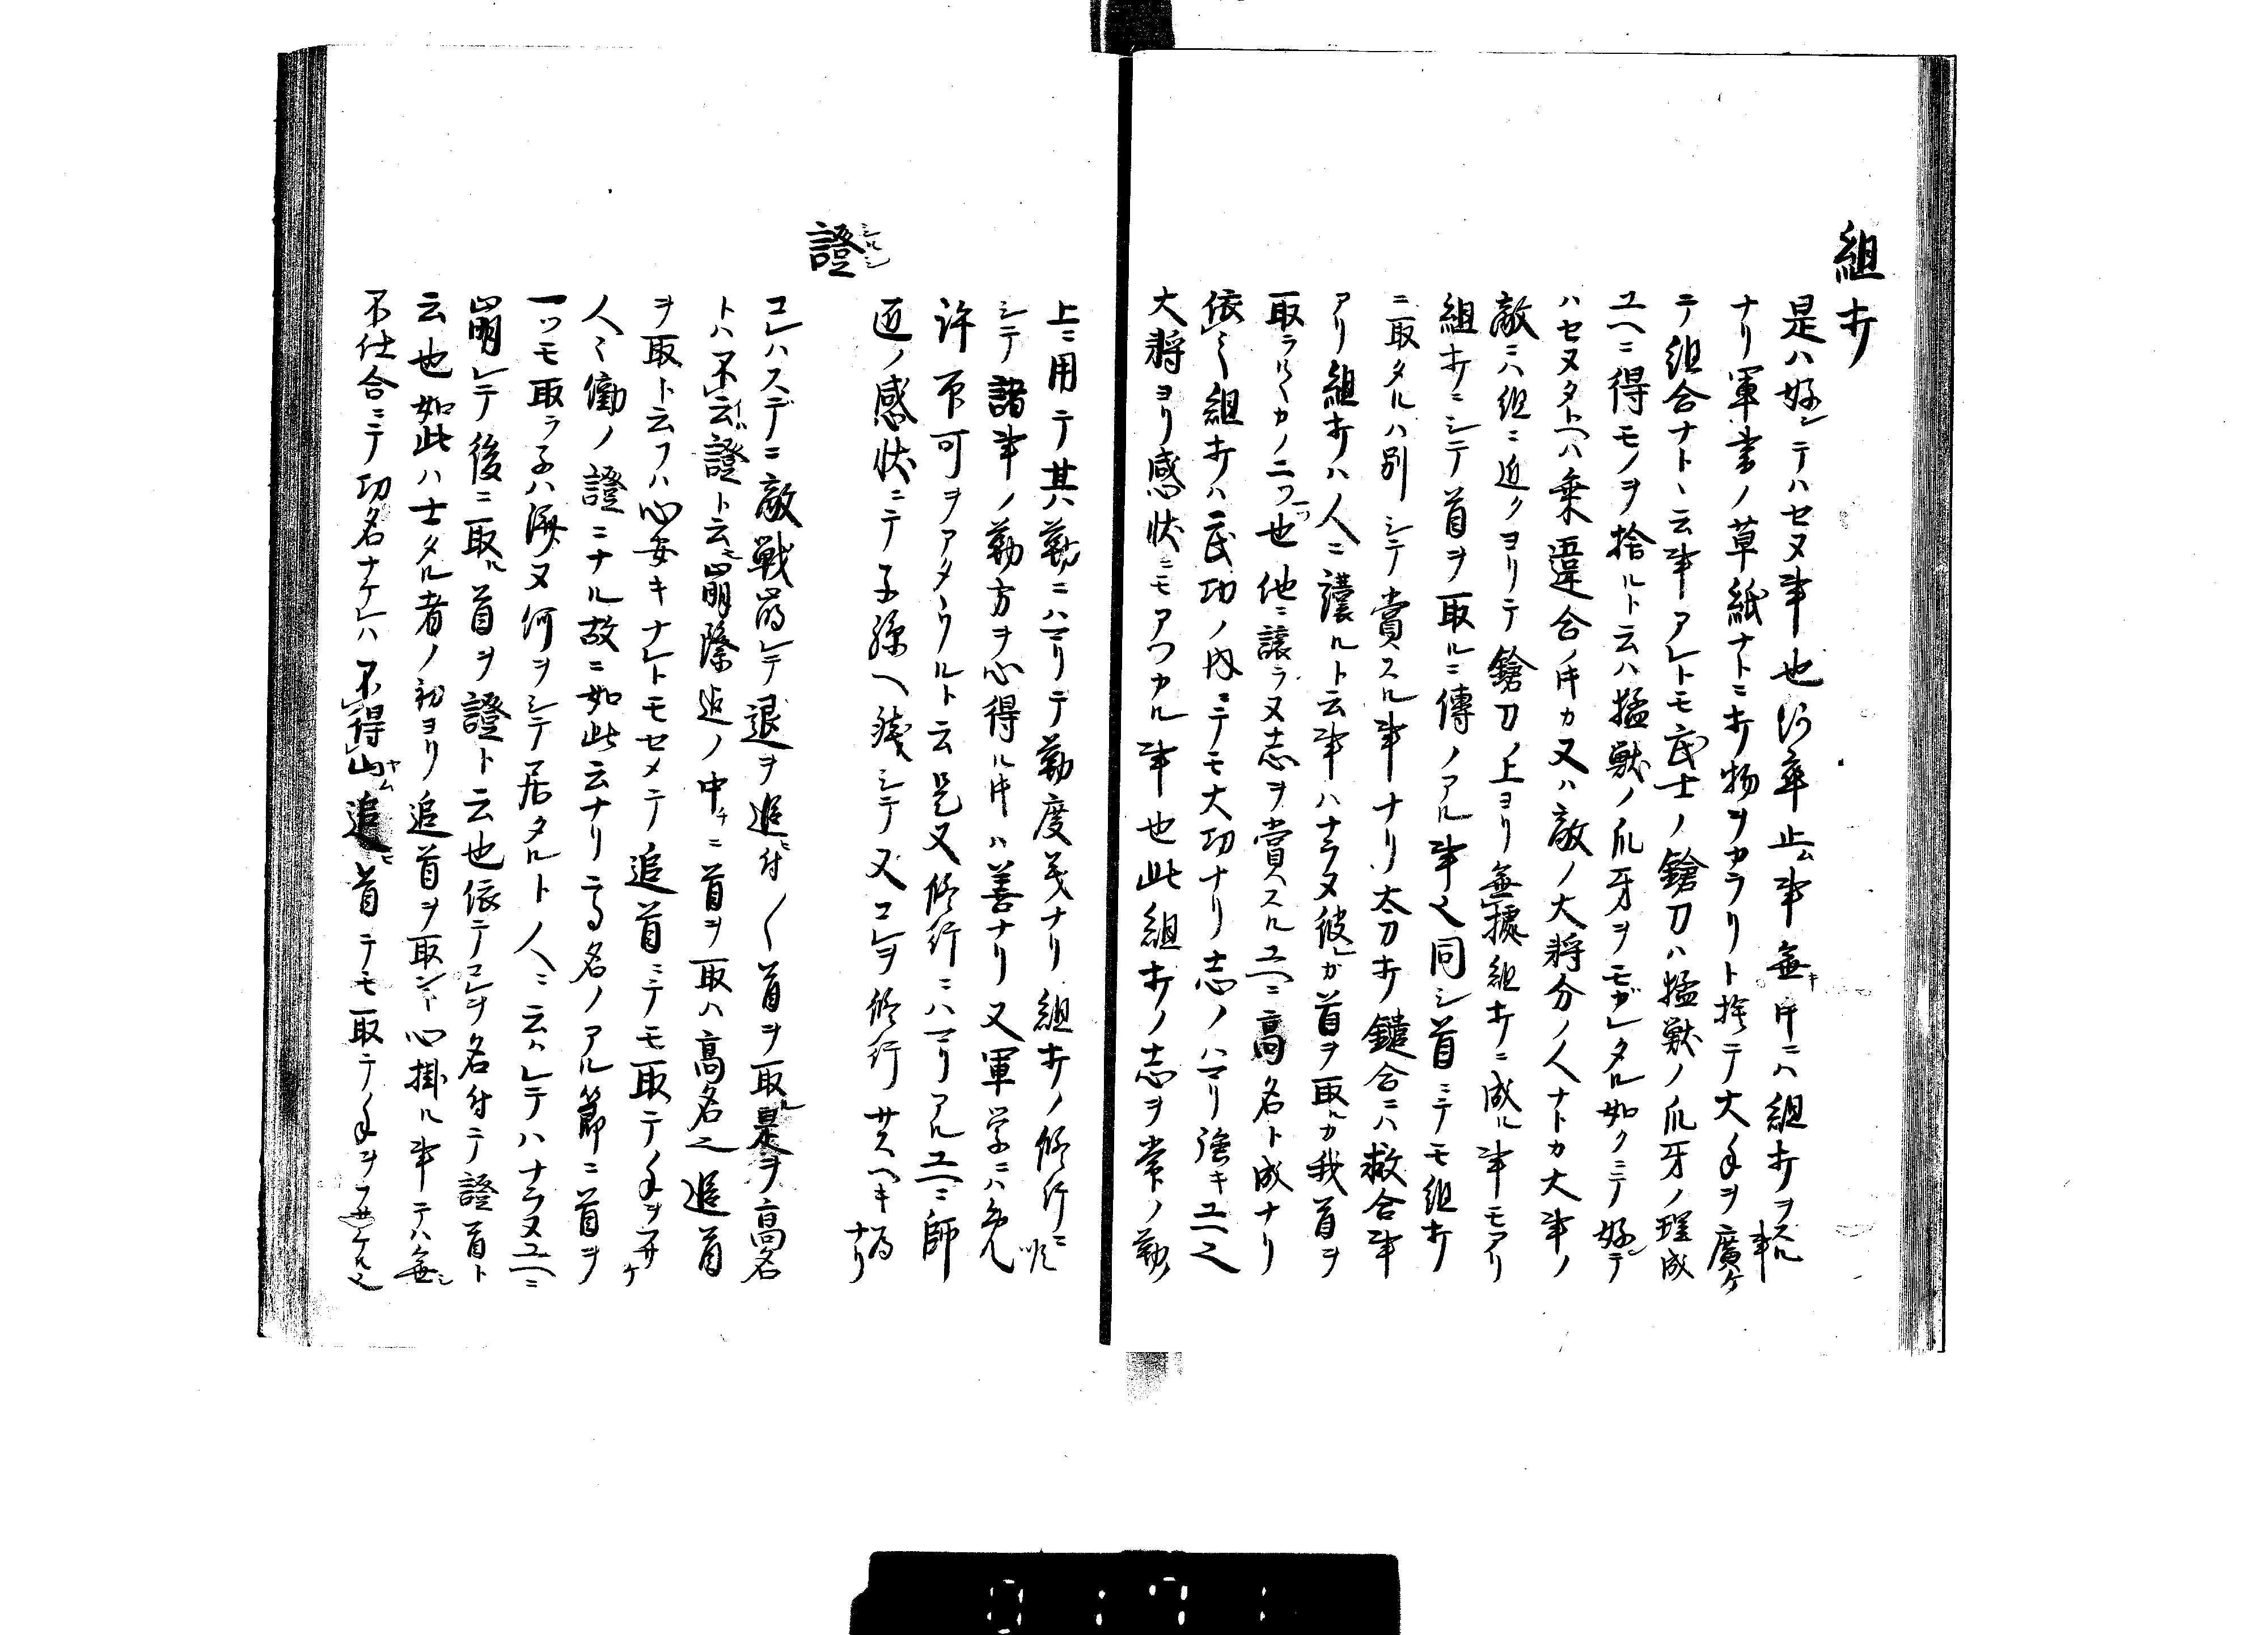 組打
是ハ好シテハセヌ事也何卒止ム事無キ時ニハ組打ヲスル事
ナリ軍書ノ草紙ナトニ打物ヲカラリト捨テ大手ヲ廣ケ
テ組合ナト丶云事アレトモ武士ノ鎗刀ハ猛獣ノ爪牙ノ理成
ユヘニ得モノヲ捨ルト云ハ猛獣ノ爪牙ヲモガレタル如クニテ好シテ
ハセヌタトヘハ乗違合ノ時カ又ハ敵ノ大将分ノ人ナトカ大事ノ
敵ニハ組ニ近クヨリテ鎗刀ノ上ヨリ無據組打ニ成ル事モアリ
組打ニシテ首ヲ取ルニ傳ノアル事也同シ首ニテモ組打
ニ取タルハ別シテ賞スル事ナリ太刀打鑓合ニハ救合事
アリ組打ハ人ニ譲ルト云事ハナラヌ彼レガ首ヲ取ルカ我首ヲ
取ラルヽカノ二ツ也他ニ譲ラヌ志ヲ賞スルユヘニ高名ト成ナリ
依之組打ハ武功ノ内ニテモ大功ナリ志ノハマリ強キユヘ也
大将ヨリ感状ニモアツカル事也此組打ノ志ヲ常ノ勤
上ニ用テ其ノ勤ニハマリテ勤度義ナリ組打ノ修行ニ
シテ諸事ノ勤方ヲ心得ル時ハ善ナリ又軍学ニハ免
許印可ヲアタヘラルト云是又修行ニハマリアルユヘニ師
匠ノ感状ニテ子孫ヘ残シテ又コレヲ修行サスヘキ為ナリ
證シルシ
コレハスデニ敵戦崩レテ退ヲ追付〱首ヲ取ル是ヲ高名
トハ不云イハ證ト云崩際近ノ中チニ首ヲ取ハ高名也追首
ヲ取ト云フハ心安キナレトモセメテ追首ニテモ取テ手ヲフサケ
人之働ノ證ニナル故ニ如此云ナリ高名ノアル節ニ首ヲ
一ツモ取ラ子ハ済ヌ何ヲシテ居タルト人ニ云ハレテハナラヌユヘニ
崩レテ後ニ取ル首ヲ證ト云也依テコレヲ名付テ證首ト
云也如此ハ士タル者ノ初ヨリ追首ヲ取ント心掛ル事テハ無シ
不仕合ニテ功名ナケレハ不得山ヤム追ヒ首テモ取テ手ヲフサケル也